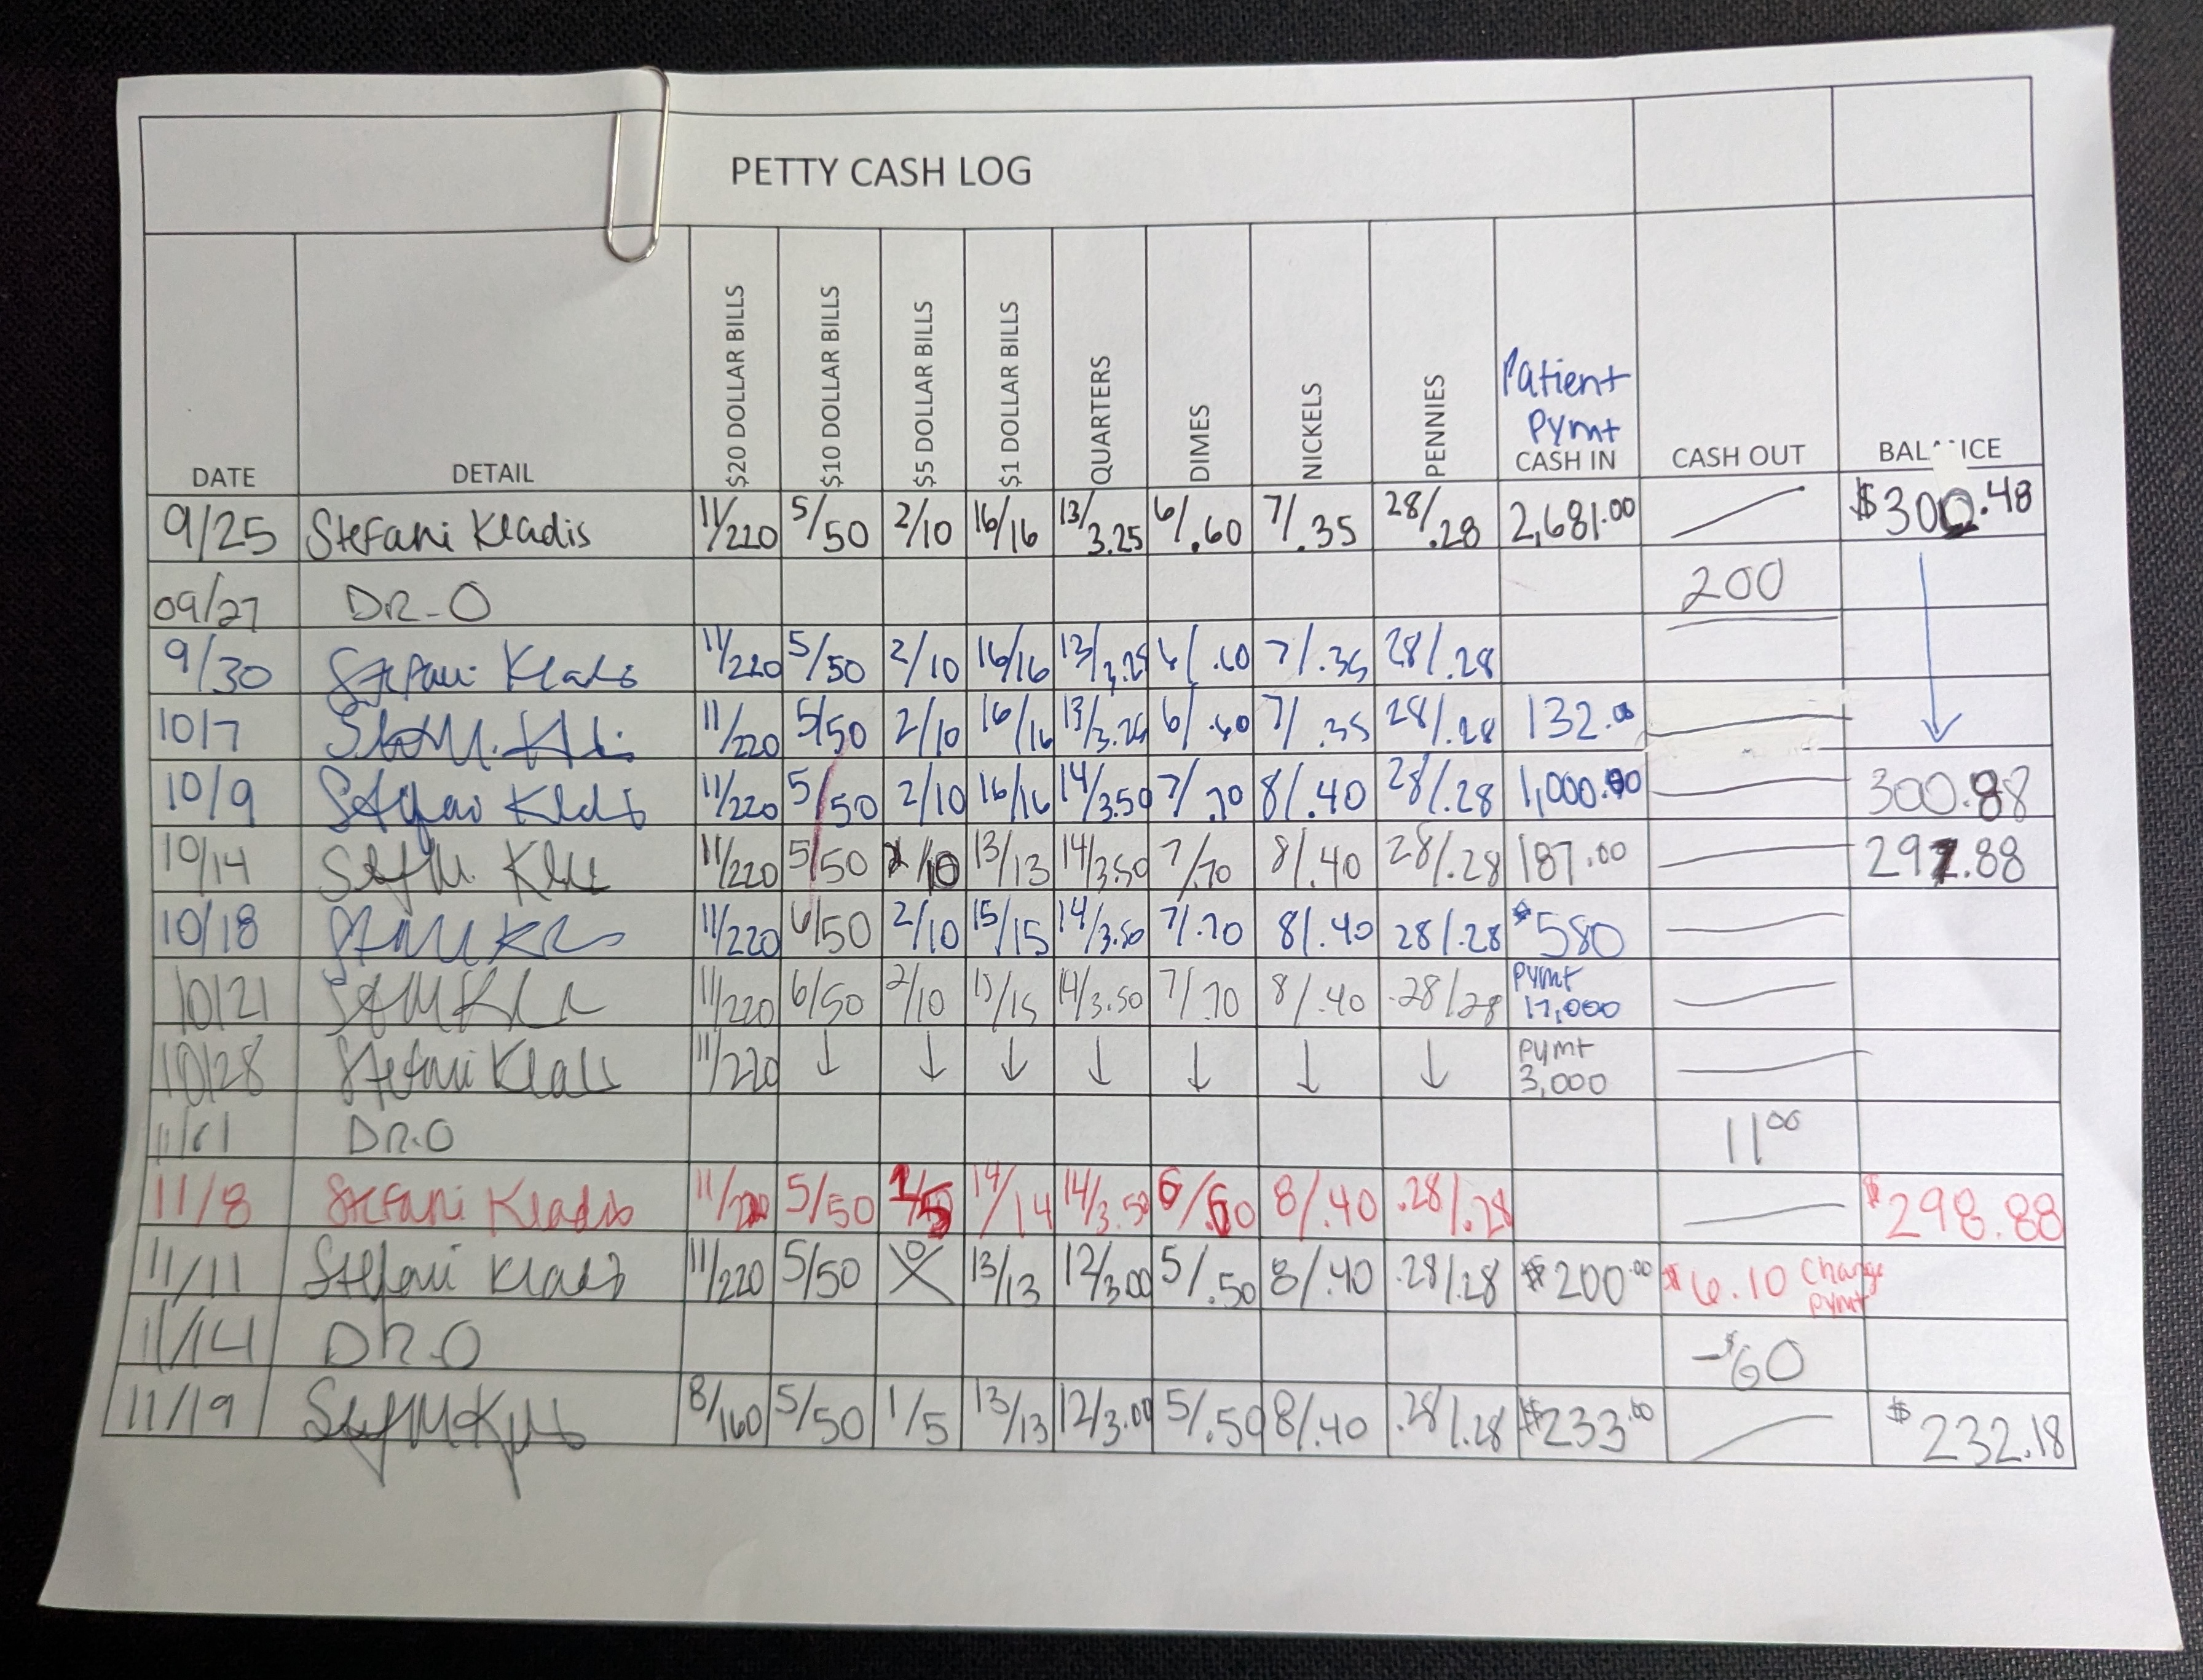 PETTY CASH LOG
DATE DETAIL $20 DOLLAR BILLS $10 DOLLAR BILLS $5 DOLLAR BILLS $1 DOLLAR BILLS QUARTERS DIMES NICKELS PENNIES Patient Pymt CASH IN CASH OUT BAL ICE
9/25 Stefani Kladis 11/220 5/50 2/10 16/16 13/3.25 6/.60 7/.35 28/.28 2,681.00 $300.48
09/27 DR-O 200
9/30 Stefani 11/220 5/50 2/10 16/16 13/3.25 6/.60 7/.35 28/.28
10/7 11/220 5/50 2/10 16/16 13/3.25 6/.60 7/.35 28/.28 132.00
10/9 11/220 5/50 2/10 16/16 14/3.50 7/.70 8/.40 28/.28 1,000.00 300.88
10/14 11/220 5/50 /10 13/13 14/3.50 7/.70 8/.40 28/.28 187.00 297.88
10/18 11/220 6/50 2/10 15/15 14/3.50 7/.70 8/.40 28/.28 $580
10/21 11/220 6/50 2/10 15/15 14/3.50 7/.70 8/.40 .28/28 Pymt 17,000
10/28 Stefani 11/220 ↓ ↓ ↓ ↓ ↓ ↓ ↓ pymt 3,000
DR.O 1100
11/8 Stefani Kladis 11/220 5/50 1/5 14/14 14/3.50 6/.60 8/.40 .28/.28 $298.88
11/11 Stefani 11/220 5/50 13/13 12/3.00 5/.50 8/.40 .28/.28 $200.00 $6.10 Change pymt
11/14 DR.O -$60
11/19 8/160 5/50 1/5 13/13 12/3.00 5/.50 8/.40 .28/.28 $233.00 $232.18